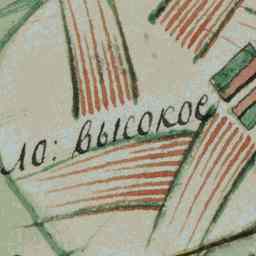 ло: высокое